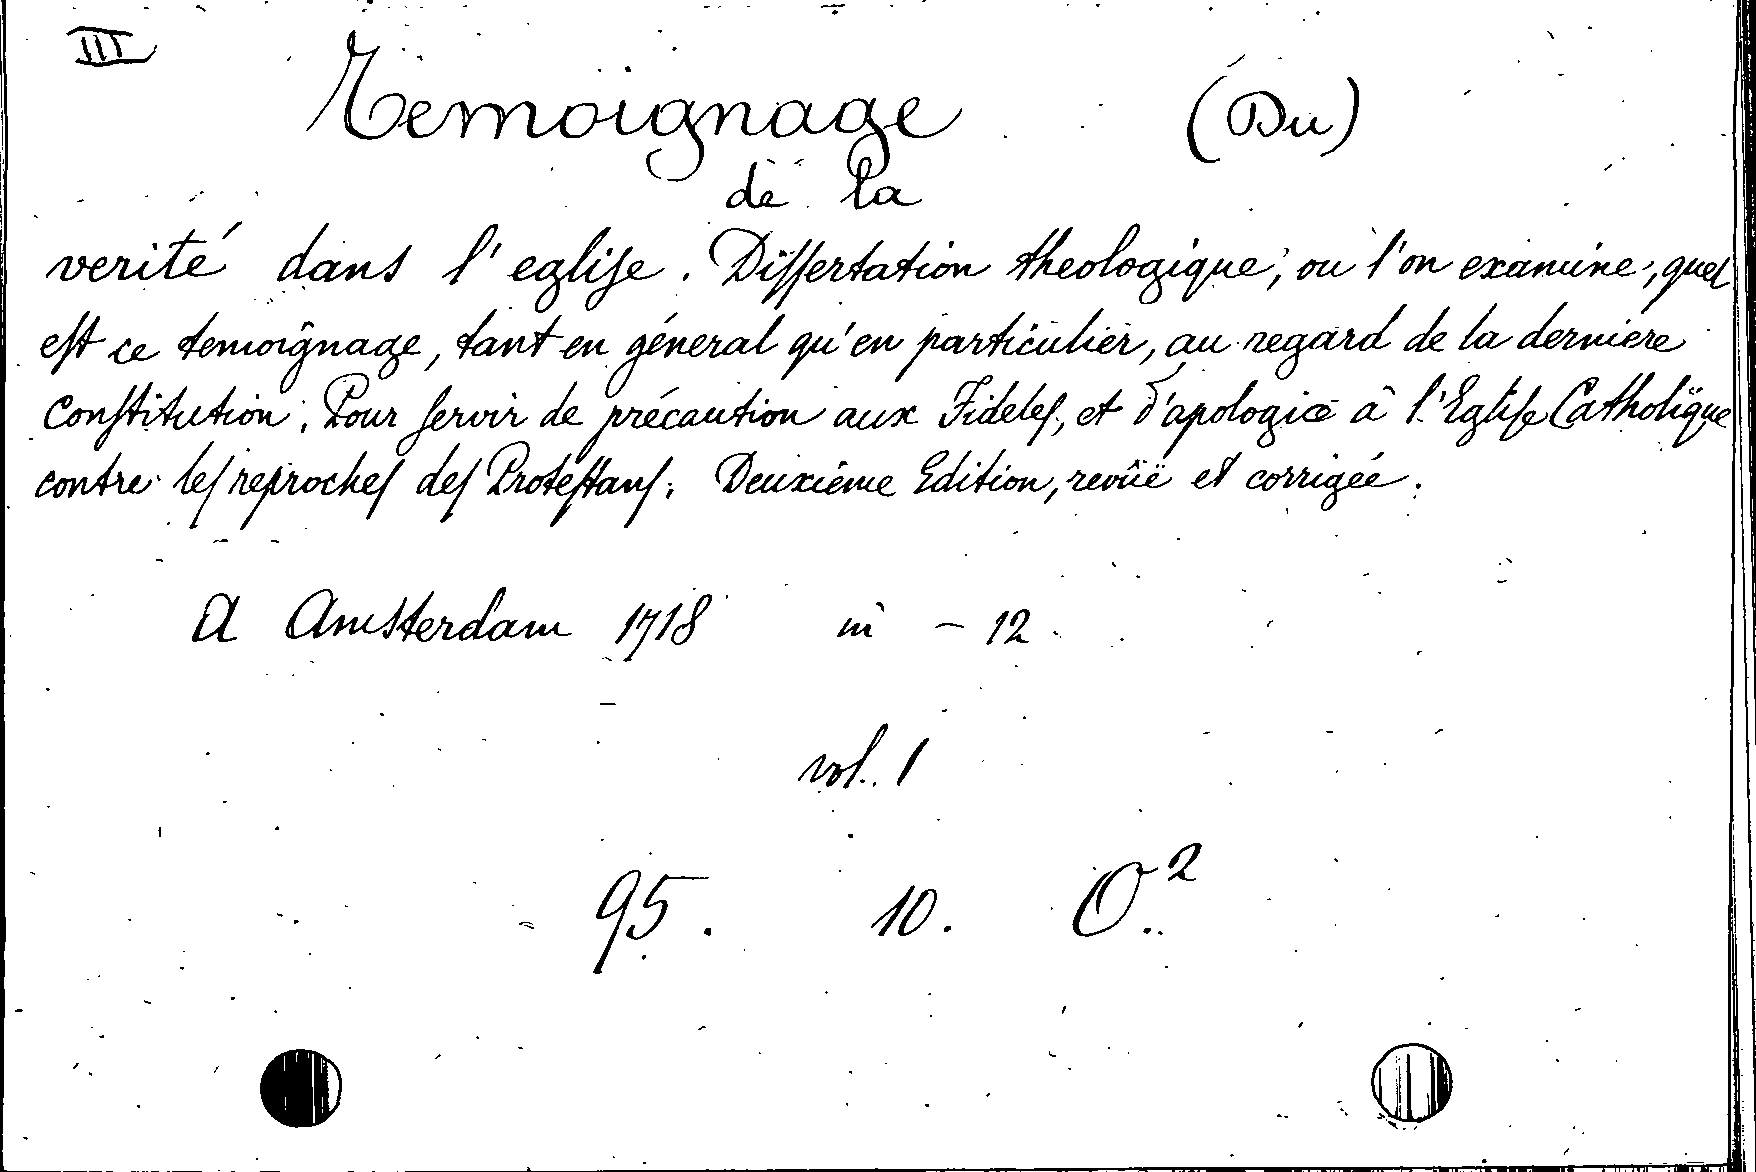 III
Temoignage (Du)
de la
verité dans l'egliſe. Diſſertation theologique, ou l'on examine, quel
eſt ce temoignage, tant en géneral qu'en particulier, au regard de la derniere
Conſtitution; Pour ſervir de précaution aux Fideleſ, et d'apologie à l'Egliſe Catholique
contre leſ reprocheſ deſ Proteſtanſ. Deuxiéme Edition, revûë et corrigée.
A Amsterdam 1718 in - 12
vol. 1
95. 10. O.²